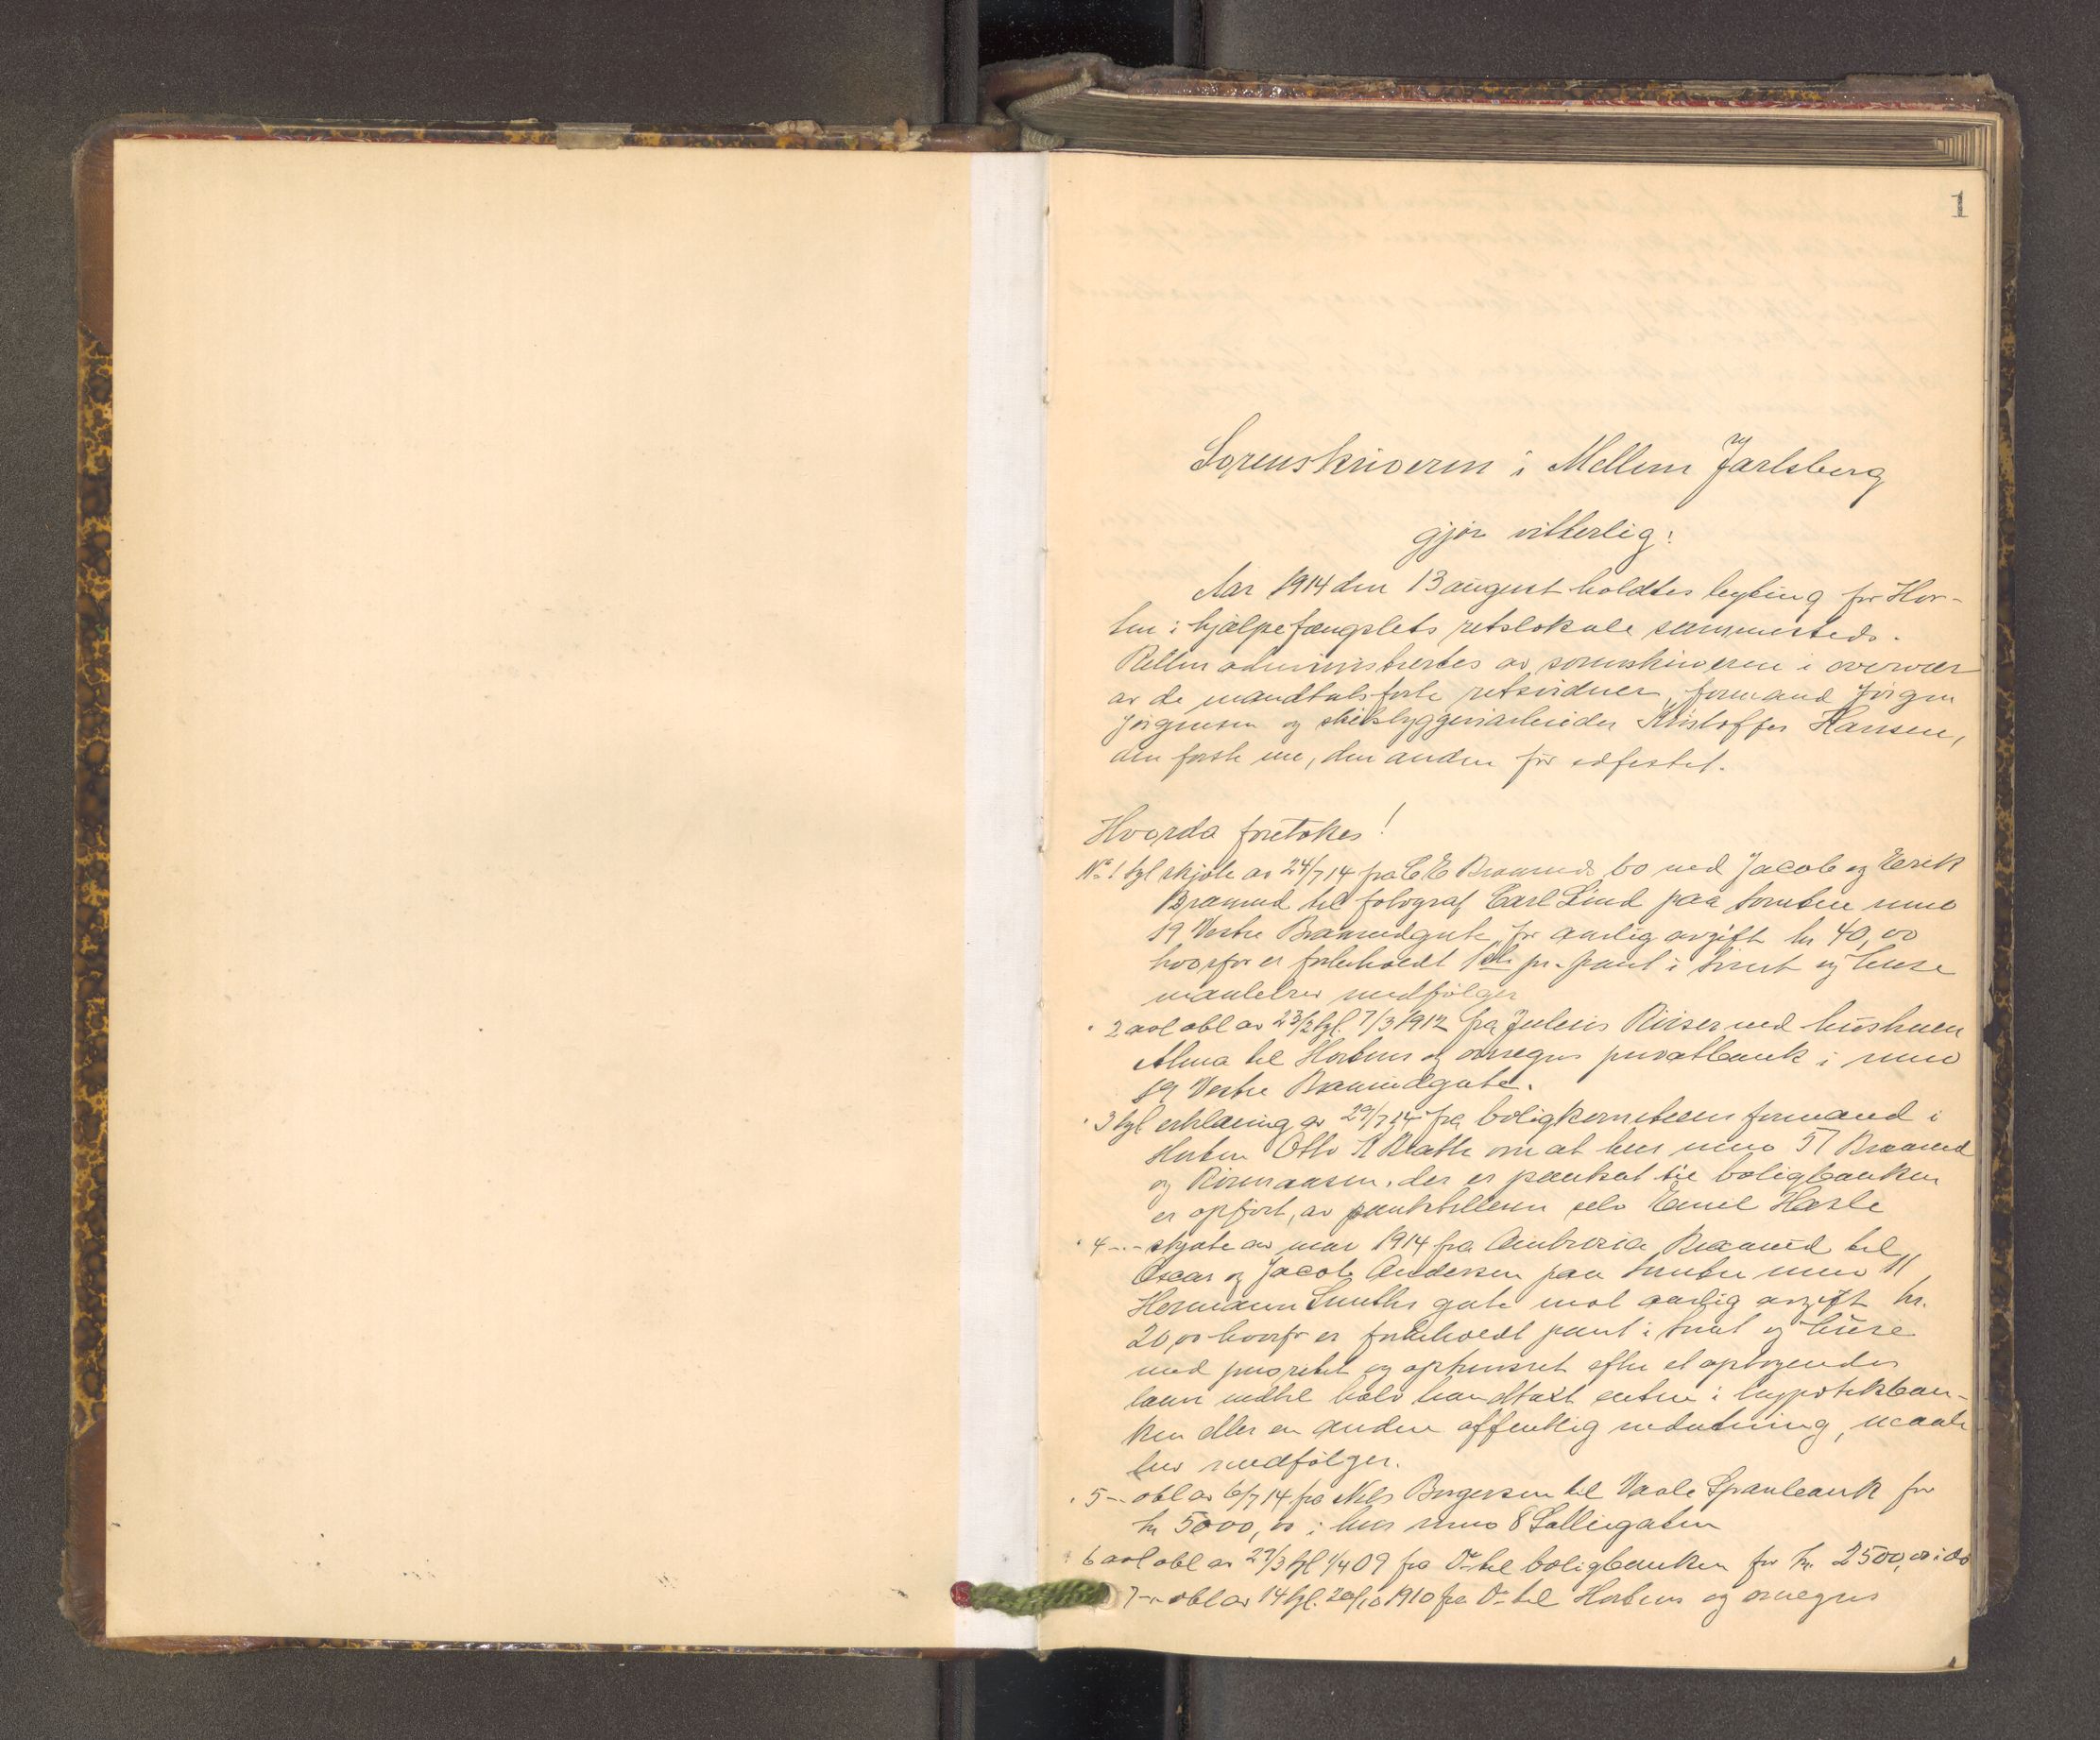 1
Sorenskriveren i Mellem Jarlsberg
gjør vitterlig:
Aar 1914 den 13 august holdtes bything for Hor-
ten i hjælpefængslets retslokale sammesteds.
Retten administrertes av sorenskriveren i overvær
av de mandtalsførte retsvidner, formand Jørgen
Jørgensen og skibsbyggeriarbeider Kristoffer Hansen,
den første nu, den anden før edfestet.
Hvorda foretokes!
No 1 tgl skjøte av 24/7 14 fra C E Braaruds bo ved Jacob og Erik
Braarud til fotograf Carl Lind paa tomten mno
19 Vestre Braarudgate for aarlig avgift kr 40,00
hvorfor er forbeholdt 1ste pr. pant i tomt og huse
maalebrev medfølger
" 2 avl obl av 23/2 tgl. 7/3 1912 fra Julius Riiser med hustruen
Alma til Hortens og omegns privatbank i mno
19 Vestre Braarudgate.
" 3 tgl erklæring av 29/7 14 fra boligkomiteens formand i
Horten Otto K om at hus mno 57 Braarud
og, der er pantsat til boligbanken
er opført, av pantstilleren selv Emil Hasle
" 4 -"- skjøte av mai 1914 fra Ambrosia Braarud til
Oscar og Jacob Andersen paa tomten mno 11
Hermann Smiths gate mot aarlig avgift kr.
20,00 hvorfor er forbeholdt pant i tomt og huse
med prioritet og oprumsret efter et optagendes
laan indtil halv branntakst enten i hypotekban-
ken eller en anden offentlig indretning, maale-
brev medfølger.
" 5 -"- obl av 6/7 14 fra Nils Borgersen til Vaale Sparebank for
kr 5000,00 i hus mno 8 Solliegaten
" 6 avl obl av 29/3 tgl 1/4 09 fra Do til boligbanken for kr. 2500,00 i do
" 7 -"- obl av 14 tgl. 20/10 1910 fra Do til Hortens og omegns